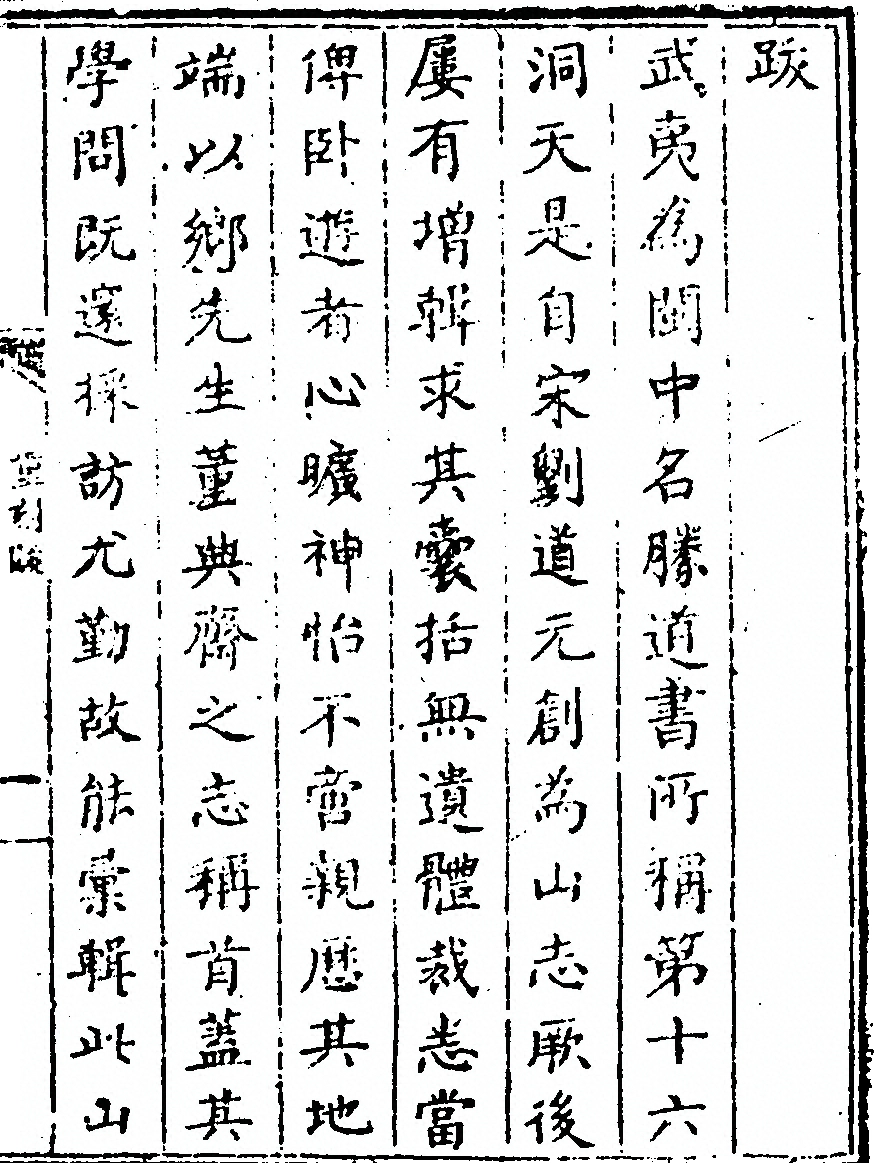 跋
武夷為閩中名勝道書所稱第十六
洞天是自宋劉道元創為山志厥後
屢有增輯求其囊括無遺體裁悉當
俾卧遊者心曠神怡不啻親歷其地
端以鄉先生董典齋之志稱首蓋其
學問既邃採訪尤勤故能彙輯此山
重刻跋
一